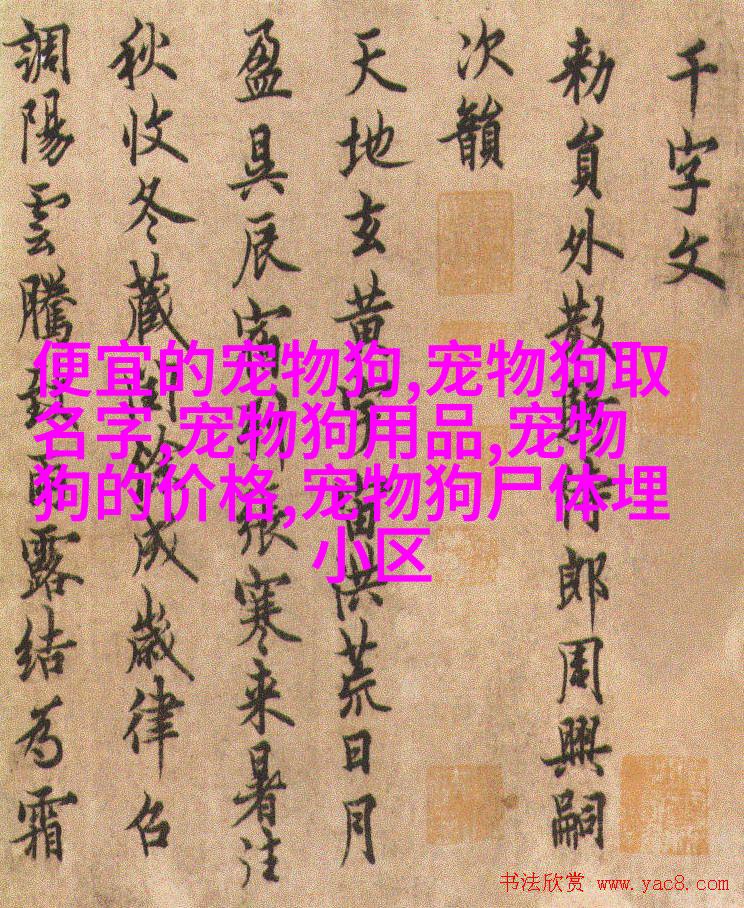 千字文
勅員外散騎侍郎周興嗣
次韻
天地玄黄宇宙洪荒日月
盈昃辰宿列張寒来暑往
秋收冬藏閏餘成歲律召
調陽雲騰致雨露結為霜
便宜的宠物狗,宠物狗取
名字,宠物狗用品,宠物
狗的价格,宠物狗尸体埋
小区
书法欣赏 www.yac8.com